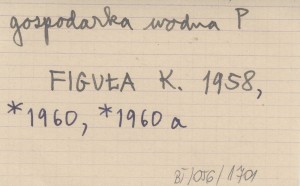 gospodarka wodna P
FIGUŁA K. 1958,
*1960, *1960 a
BJ/056/1701